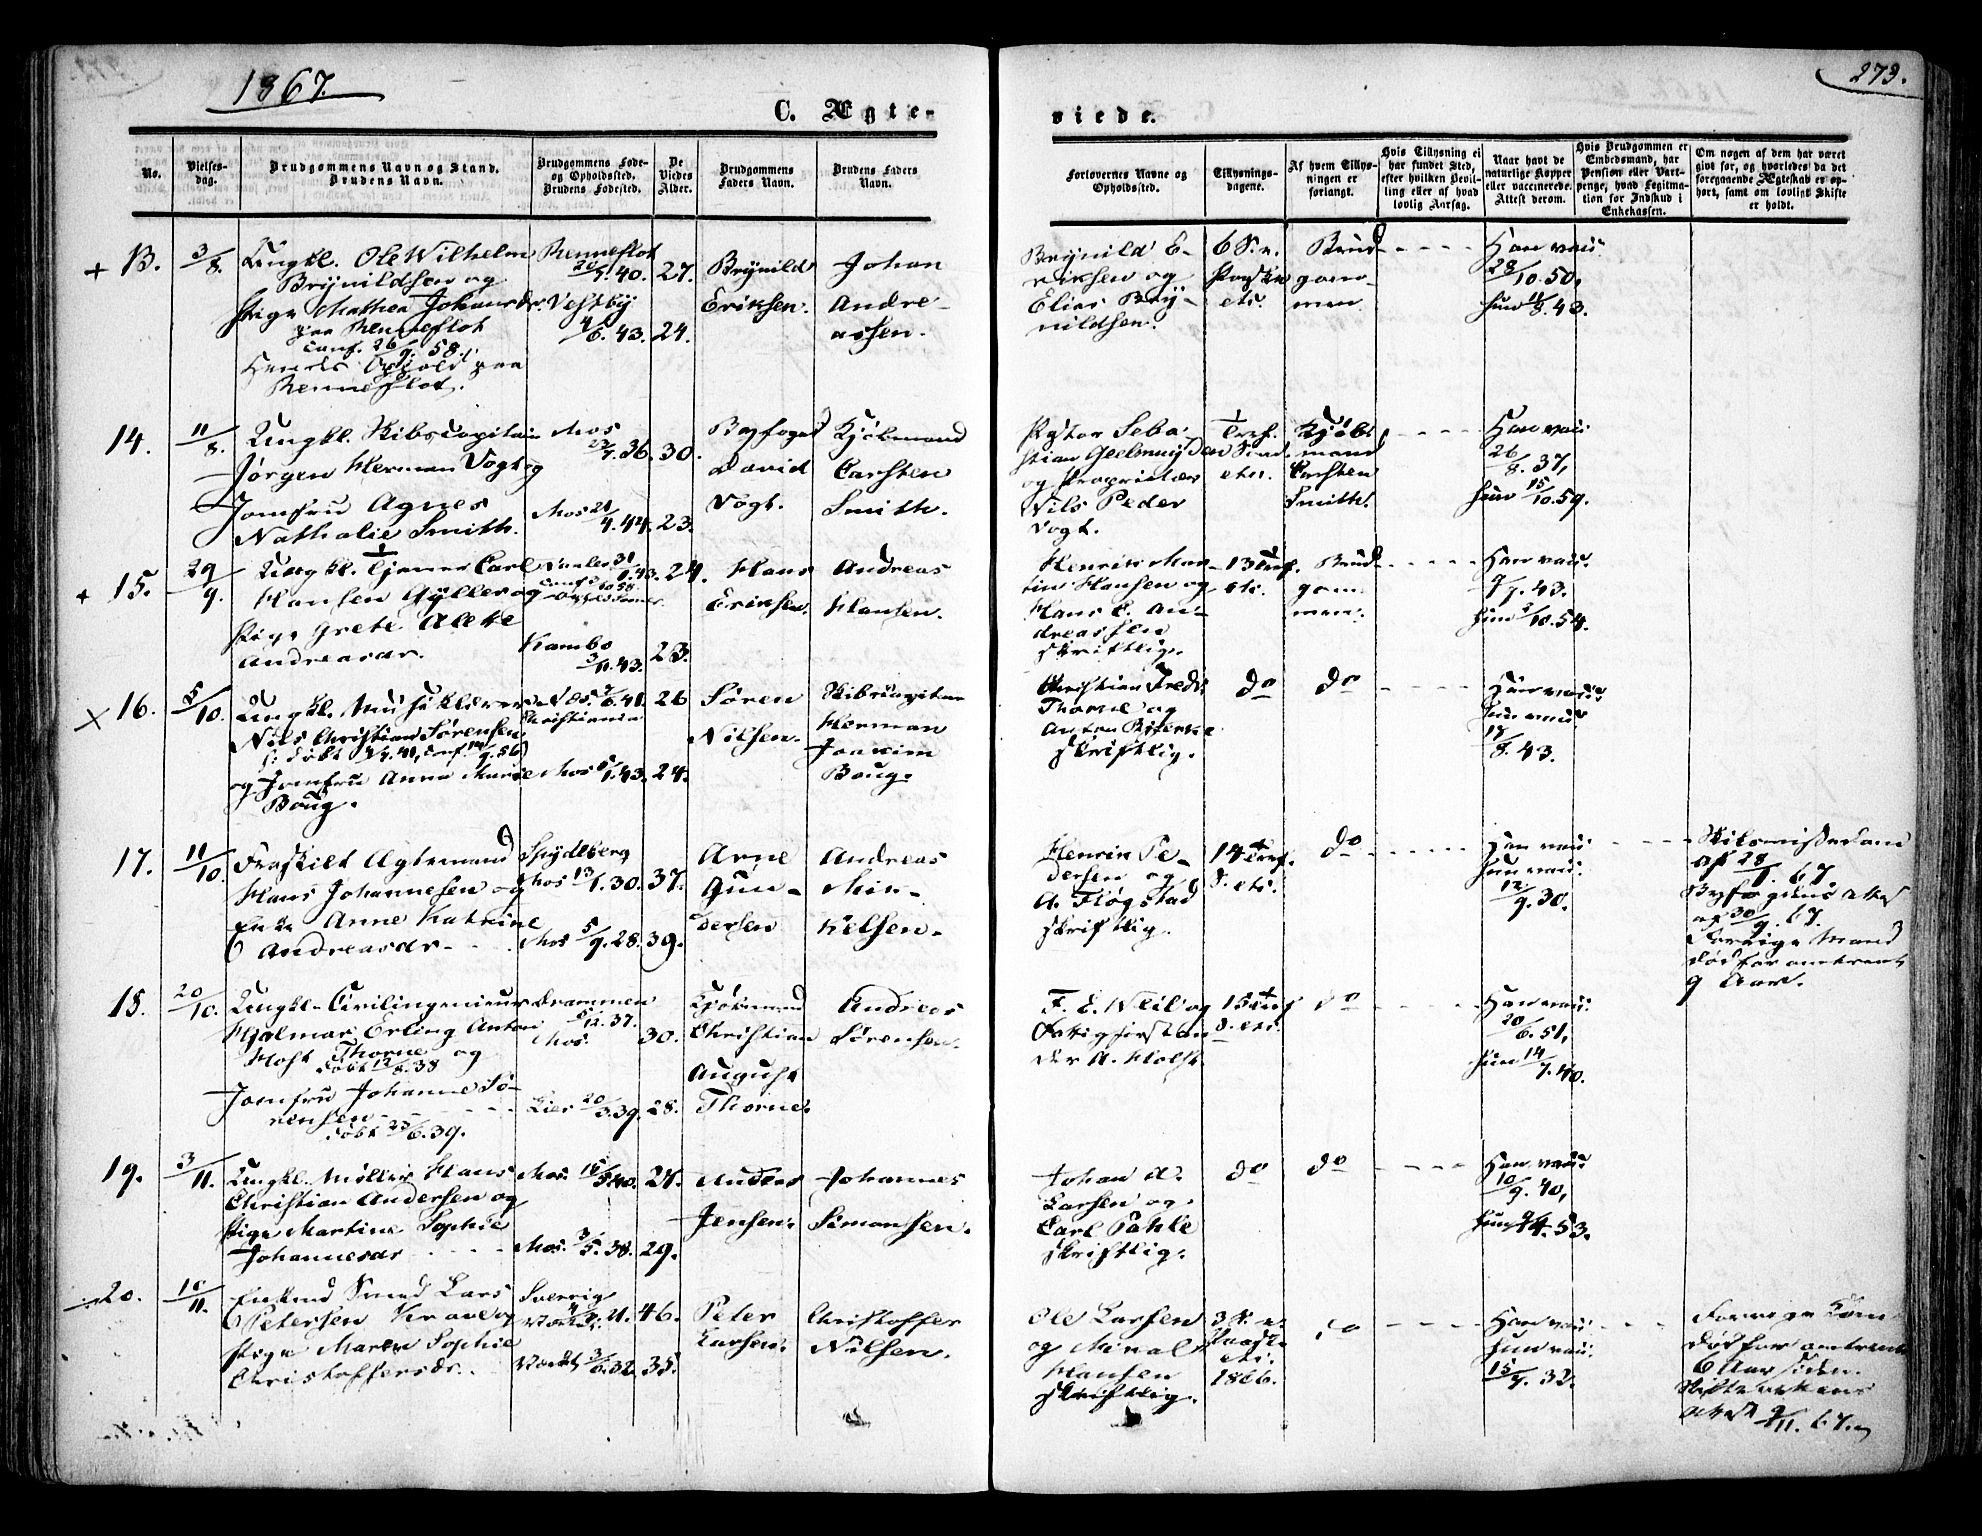 1867.
273.
C. Ægte-
viede.
No.
Vielses-
dag.
Brudgommens Navn og Stand.
Brudens Navn.
Brudgommens Føde-
og Opholdssted.
Brudens Fødested.
De
Viedes
Alder.
Brudgommens
Faders Navn.
Brudens Faders
Navn.
Forlovernes Navne og
Opholdssted.
Tillysnings-
dagene.
Af hvem Tillys-
ningen er
forlangt.
Hvis Tillysning ei
har fundet Sted,
efter hvilken Bevil-
ling eller af hvad
lovlig Aarsag.
Naar havt de
naturlige Kopper
eller vaccinerede.
Attest derom.
Hvis Brudgommen er
Embedsmand, har
Pension eller Vart-
penge, hvad Legitima-
tion for Indskud i
Enkekassen.
Om nogen af dem har været
gift før, og hvorledes da det
foregaaende Ægteskab er op-
hørt, samt om lovligt Skifte
er holdt.
+ 13. 3/8. Ungkl. Ole Wilhelm
Brynildsen og
Pige Mathea Johansdr.
paa Renneflot
conf. 26/9. 58.
Ophold paa
Renneflot.
Renneflot
40. 27.
Vestby
4/6. 43. 24.
Brynild
Eriksen.
Johan
Andre-
assen.
Brynild E-
riksen og
Elias Bry-
nildsen.
6 S. e.
Paaske
etc.
Brud-
gom-
men
Han vac.
28/10. 50,
Hun 11/8. 43.
14. 11/8. Ungkl. Skibscapitain
Jørgen Herman Vogt og
Jomfru Agnes
Nathalie Smith.
Mos
36. 30.
Mos 21/4. 44. 23.
Byfoged
David
Vogt.
Kjøbmand
Carsten
Smith.
Pastor Seba-
stian Geelmuyden
og Proprietær
Nils Peder
Vogt.
1 Tref.
Sønd.
etc.
Kjøb-
mand
Carsten
Smith.
Han vac.
26/8. 37,
Hun 15/10. 59.
+ 15. 29/9. Ungkl. Tjener Carl
Hansen Gylder og
Pige Grete Alette
Andreasdr.
43. 24.
Kambo
3/11. 43. 23.
Hans
Eriksen.
Andreas
Hansen.
Henrik Mar-
tin Hansen og
Hans C. An-
dreassen
skriftlig.
13 Tref.
etc.
Brud-
gom-
men.
Han vac.
9/9. 43.
Hun 3/10. 54.
x 16. 5/10. Ungkl.
Nils Christian Sørensen
og Jomfru Anna Marie
Boug.
Næs 41. 26
Christiania
Mos 5/1. 43. 24.
Søren
Nilsen.
Skibscapitain
Herman
Joakim
Boug.
Christian Fredr.
Thorne og
Anton
skriftlig.
do
do
Han vac.
Hun vac.
17/8. 43.
17. 11/10. Fraskilt Ægtemand
Hans Johannesen og
Enke Anne Katrine
Andreasdr.
Spydeberg
Mos 13/1. 30. 37.
Mos 5/9. 28. 39.
Arne
Gun-
dersen
Andreas
Mik-
kelsen.
Henrik Pe-
dersen og
A. Fløgstad
skriftlig.
14 Tref.
S. etc.
do
Han vac.
Hun vac.
12/9. 30.
Skilsmissedom
af 28/1. 67
Byfogdens Attest
af 30/9. 67.
Forrige Mand
død for omtrent
9 Aar.
18. 20/10. Ungkl. Civilingenieur
Hjalmar Erling Anton
Høst Thorne og
Døbt 12/2. 38
Jomfru Johanne Sø-
rensen
Døbt 23/6. 39.
Drammen
5/12. 37.
Mos. 30.
Lier 20/3. 39. 28.
Kjøbmand
Christian
August
Thorne.
Andreas
Sørensen.
F. E. Neil og
Fattigforstan-
der A. Holst
15 Tref
S. etc.
do
Han vac.
20/6. 51,
Hun 14/7. 40.
19. 3/11. Ungkl. Møller Hans
Christian Andersen og
Pige Martine Sophie
Johannesdr
Mos. 15/5. 40. 27.
Mos. 3/5. 38. 29.
Anders
Jensen.
Johannes
Simonsen.
Johan A.
Larsen og
Carl Pahle
skriftlig.
do
do
Han vac.
10/9. 40,
Hun 9/4. 53.
20. 10/11. Enkemd Smed Lars
Petersen Kraved og
Pige Maren Sophie
Christoffersdr.
Sverrig
21. 46.
32. 35.
Peter
Larsen.
Christoffer
Nilsen.
Ole Larsen
og Mikal
Hansen
skriftlig.
3 S. e.
Paaske
etc.
1866.
do
Han vac.
Hun vac.
15/7. 32.
Forrige Kone
død for omtrent
6 Aar siden.
Skifterettens
Attest 9/11. 67.